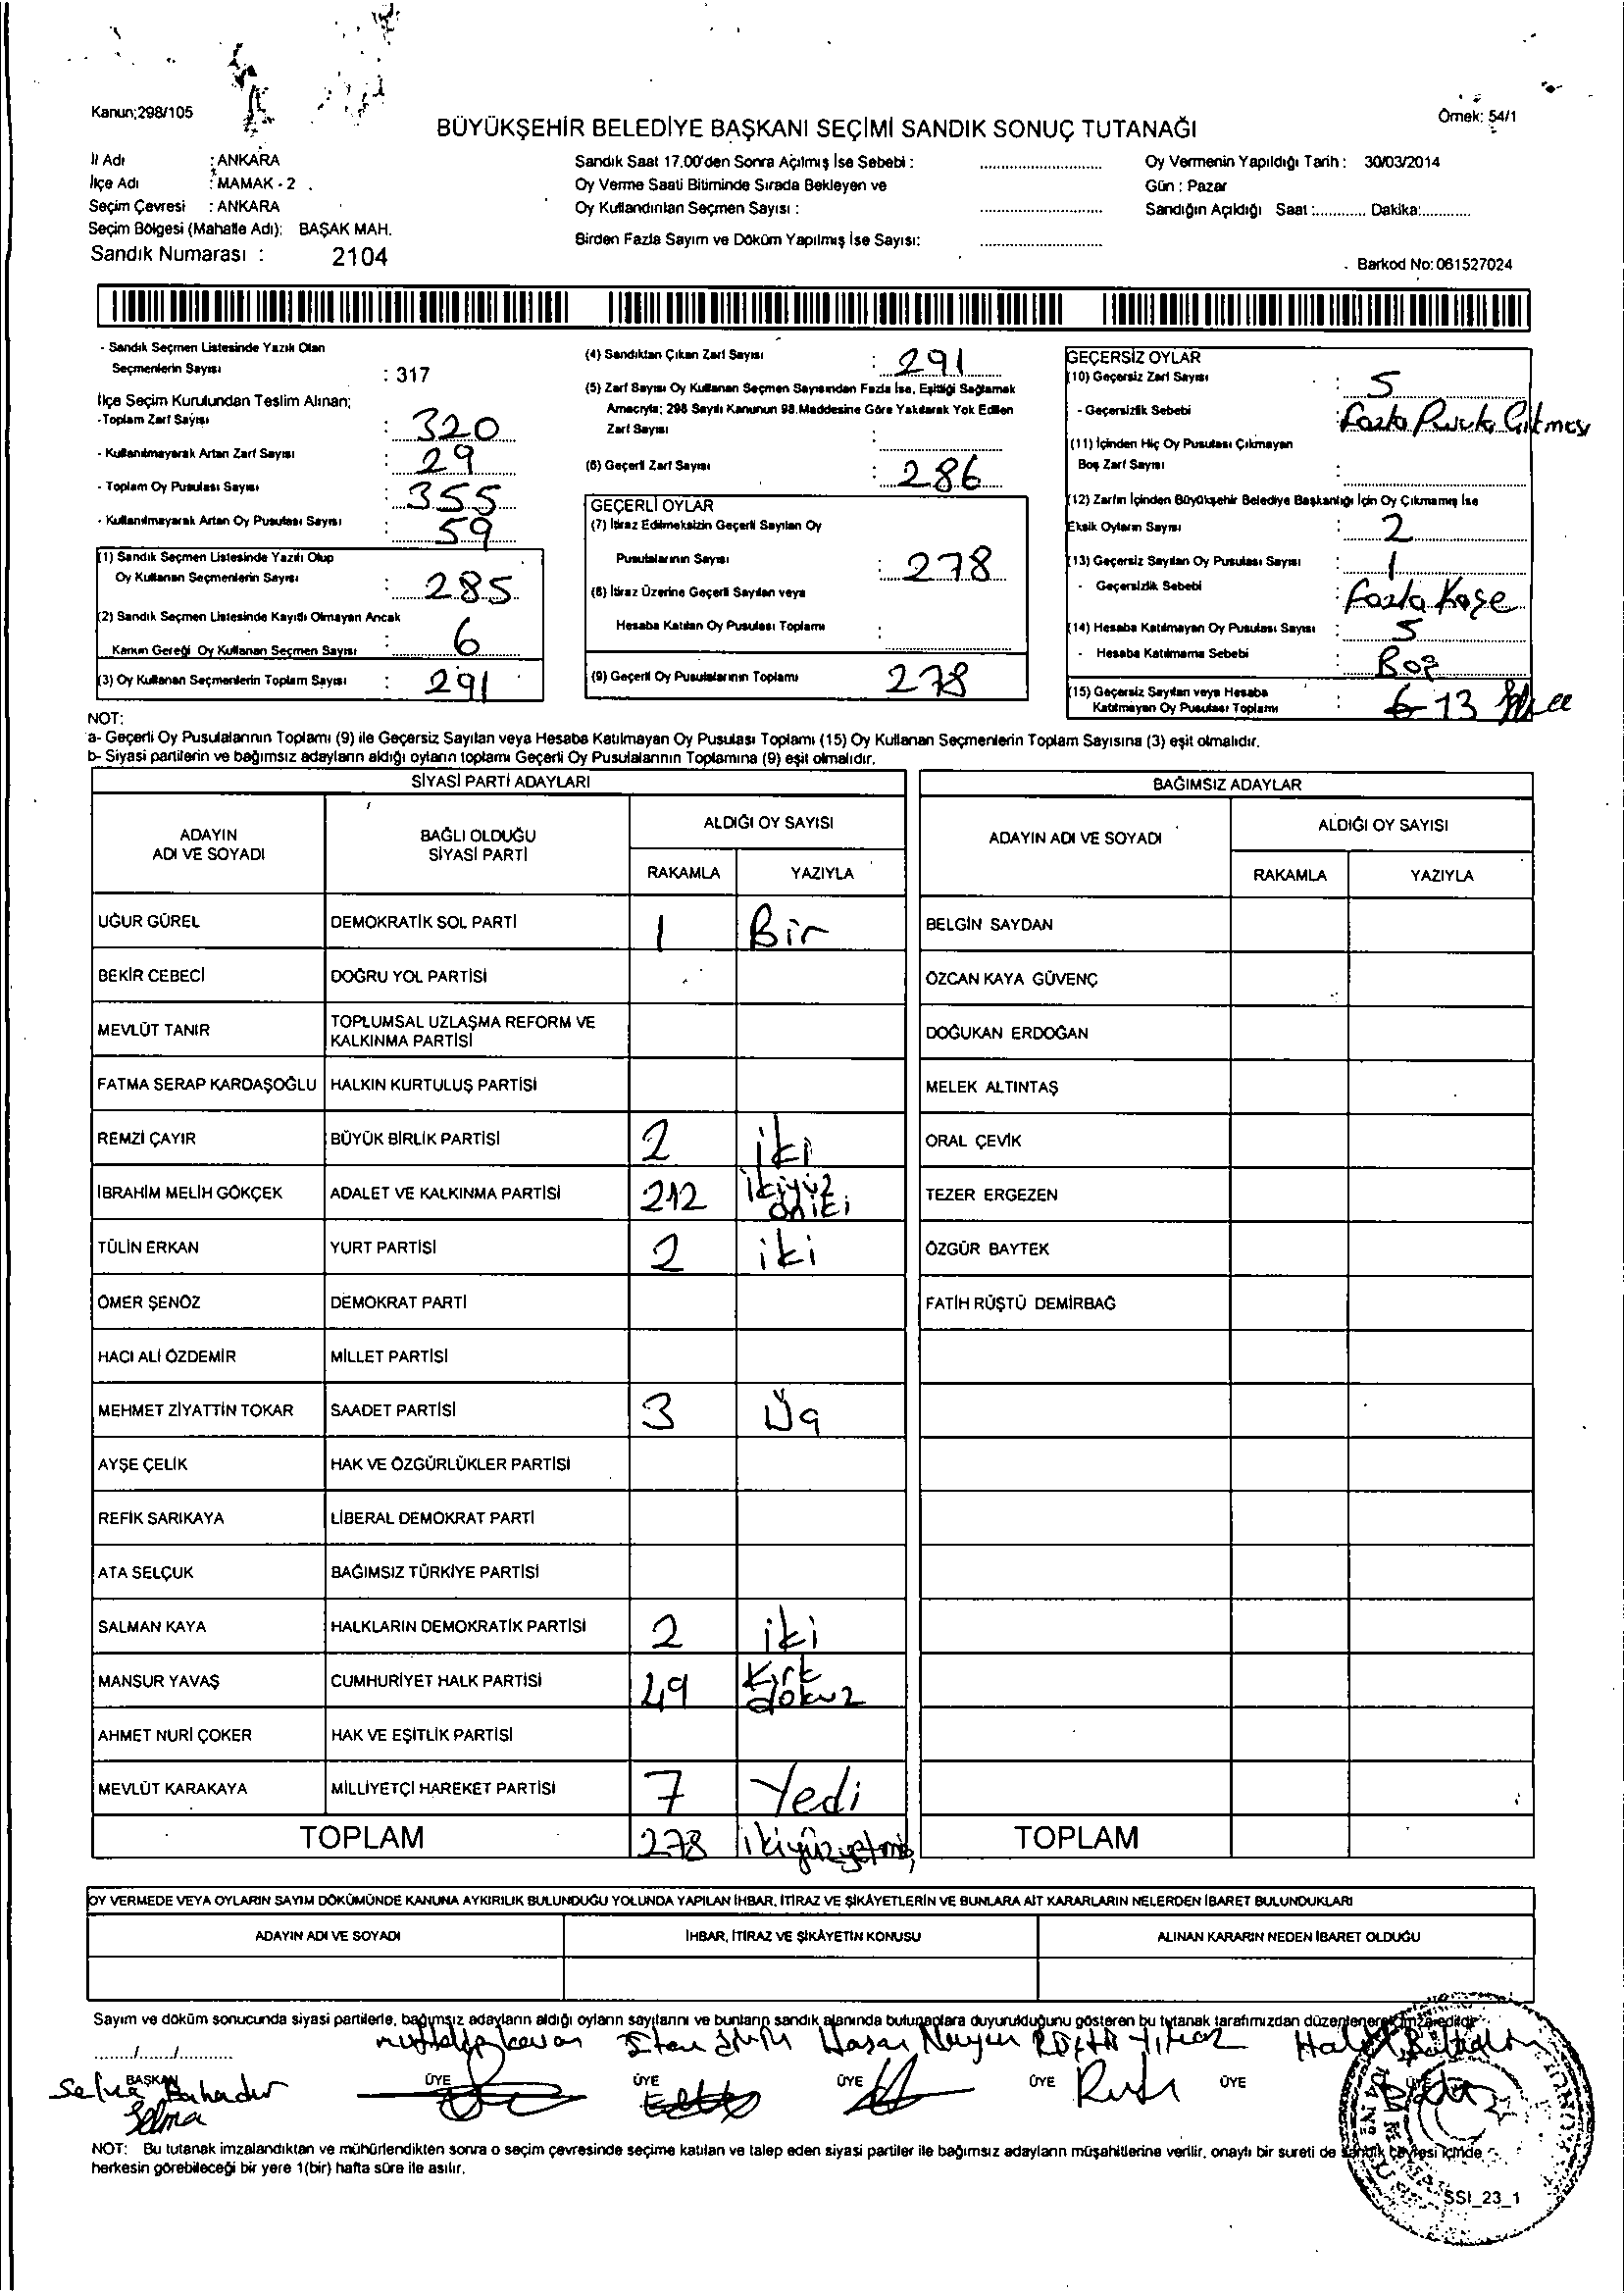 Kanun;298/105
Örnek: 54/1
BÜYÜKŞEHİR BELEDİYE BAŞKANI SEÇİMİ SANDIK SONUÇ TUTANAĞI
İl Adı : ANKARA
İlçe Adı : MAMAK - 2
Seçim Çevresi : ANKARA
Seçim Bölgesi (Mahalle Adı): BAŞAK MAH.
Sandık Numarası : 2104
Sandık Saat 17.00'den Sonra Açılmış İse Sebebi :
Oy Verme Saati Bitiminde Sırada Bekleyen ve
Oy Kullandırılan Seçmen Sayısı :
Birden Fazla Sayım ve Döküm Yapılmış İse Sayısı:
Oy Vermenin Yapıldığı Tarih : 30/03/2014
Gün : Pazar
Sandığın Açıldığı Saat :............ Dakika:............
Barkod No: 061527024
- Sandık Seçmen Listesinde Yazılı Olan
Seçmenlerin Sayısı : 317
İlçe Seçim Kurulundan Teslim Alınan;
- Toplam Zarf Sayısı : 320
- Kullanılmayarak Artan Zarf Sayısı : 29
- Toplam Oy Pusulası Sayısı : 355
- Kullanılmayarak Artan Oy Pusulası Sayısı : 59
(1) Sandık Seçmen Listesinde Yazılı Olup
Oy Kullanan Seçmenlerin Sayısı : 285
(2) Sandık Seçmen Listesinde Kayıtlı Olmayan Ancak
Kanun Gereği Oy Kullanan Seçmen Sayısı : 6
(3) Oy Kullanan Seçmenlerin Toplam Sayısı : 291
(4) Sandıktan Çıkan Zarf Sayısı : 291
(5) Zarf Sayısı Oy Kullanan Seçmen Sayısından Fazla İse, Eşitliği Sağlamak
Amacıyla; 298 Sayılı Kanunun 98.Maddesine Göre Yakılarak Yok Edilen
Zarf Sayısı :
(6) Geçerli Zarf Sayısı : 286
GEÇERLİ OYLAR
(7) İtiraz Edilmeksizin Geçerli Sayılan Oy
Pusulalarının Sayısı : 278
(8) İtiraz Üzerine Geçerli Sayılan veya
Hesaba Katılan Oy Pusulası Toplamı :
(9) Geçerli Oy Pusulalarının Toplamı 278
GEÇERSİZ OYLAR
(10) Geçersiz Zarf Sayısı : 5
- Geçersizlik Sebebi : Fazla Pusula Çıkması
(11) İçinden Hiç Oy Pusulası Çıkmayan
Boş Zarf Sayısı :
(12) Zarfın İçinden Büyükşehir Belediye Başkanlığı İçin Oy Çıkmamış İse
Eksik Oyların Sayısı : 2
(13) Geçersiz Sayılan Oy Pusulası Sayısı : 1
- Geçersizlik Sebebi : Fazla Kaşe
(14) Hesaba Katılmayan Oy Pusulası Sayısı : 5
- Hesaba Katılmama Sebebi : Boş
(15) Geçersiz Sayılan veya Hesaba
Katılmayan Oy Pusulası Toplamı : 6 13
NOT:
a- Geçerli Oy Pusulalarının Toplamı (9) ile Geçersiz Sayılan veya Hesaba Katılmayan Oy Pusulası Toplamı (15) Oy Kullanan Seçmenlerin Toplam Sayısına (3) eşit olmalıdır.
b- Siyasi partilerin ve bağımsız adayların aldığı oyların toplamı Geçerli Oy Pusulalarının Toplamına (9) eşit olmalıdır.
SİYASİ PARTİ ADAYLARI
ADAYIN ADI VE SOYADI
BAĞLI OLDUĞU SİYASİ PARTİ
ALDIĞI OY SAYISI
RAKAMLA YAZIYLA
UĞUR GÜREL DEMOKRATİK SOL PARTİ 1 Bir
BEKİR CEBECİ DOĞRU YOL PARTİSİ
MEVLÜT TANIR TOPLUMSAL UZLAŞMA REFORM VE KALKINMA PARTİSİ
FATMA SERAP KARDAŞOĞLU HALKIN KURTULUŞ PARTİSİ
REMZİ ÇAYIR BÜYÜK BİRLİK PARTİSİ 2 iki
İBRAHİM MELİH GÖKÇEK ADALET VE KALKINMA PARTİSİ 212 ikiyüz oniki
TÜLİN ERKAN YURT PARTİSİ 2 iki
ÖMER ŞENÖZ DEMOKRAT PARTİ
HACI ALİ ÖZDEMİR MİLLET PARTİSİ
MEHMET ZİYATTİN TOKAR SAADET PARTİSİ 3 Üç
AYŞE ÇELİK HAK VE ÖZGÜRLÜKLER PARTİSİ
REFİK SARIKAYA LİBERAL DEMOKRAT PARTİ
ATA SELÇUK BAĞIMSIZ TÜRKİYE PARTİSİ
SALMAN KAYA HALKLARIN DEMOKRATİK PARTİSİ 2 iki
MANSUR YAVAŞ CUMHURİYET HALK PARTİSİ 49 Kırk dokuz
AHMET NURİ ÇOKER HAK VE EŞİTLİK PARTİSİ
MEVLÜT KARAKAYA MİLLİYETÇİ HAREKET PARTİSİ 7 Yedi
TOPLAM 278
BAĞIMSIZ ADAYLAR
ADAYIN ADI VE SOYADI
ALDIĞI OY SAYISI
RAKAMLA YAZIYLA
BELGİN SAYDAN
ÖZCAN KAYA GÜVENÇ
DOĞUKAN ERDOĞAN
MELEK ALTINTAŞ
ORAL ÇEVİK
TEZER ERGEZEN
ÖZGÜR BAYTEK
FATİH RÜŞTÜ DEMİRBAĞ
TOPLAM
OY VERMEDE VEYA OYLARIN SAYIM DÖKÜMÜNDE KANUNA AYKIRILIK BULUNDUĞU YOLUNDA YAPILAN İHBAR, İTİRAZ VE ŞİKÂYETLERİN VE BUNLARA AİT KARARLARIN NELERDEN İBARET BULUNDUKLARI
ADAYIN ADI VE SOYADI İHBAR, İTİRAZ VE ŞİKÂYETİN KONUSU ALINAN KARARIN NEDEN İBARET OLDUĞU
Sayım ve döküm sonucunda siyasi partilerle, bağımsız adayların aldığı oyların sayılarını ve bunların sandık alanında bulunanlara duyurulduğunu gösteren bu tutanak tarafımızdan düzenlenerek imza edildi.
......./......./...........
BAŞKAN ÜYE ÜYE ÜYE ÜYE ÜYE
Selma Bahadır
Selma
NOT: Bu tutanak imzalandıktan ve mühürlendikten sonra o seçim çevresinde seçime katılan ve talep eden siyasi partiler ile bağımsız adayların müşahitlerine verilir, onaylı bir sureti de sandık çevresi içinde
herkesin görebileceği bir yere 1(bir) hafta süre ile asılır.
SSI_23_1